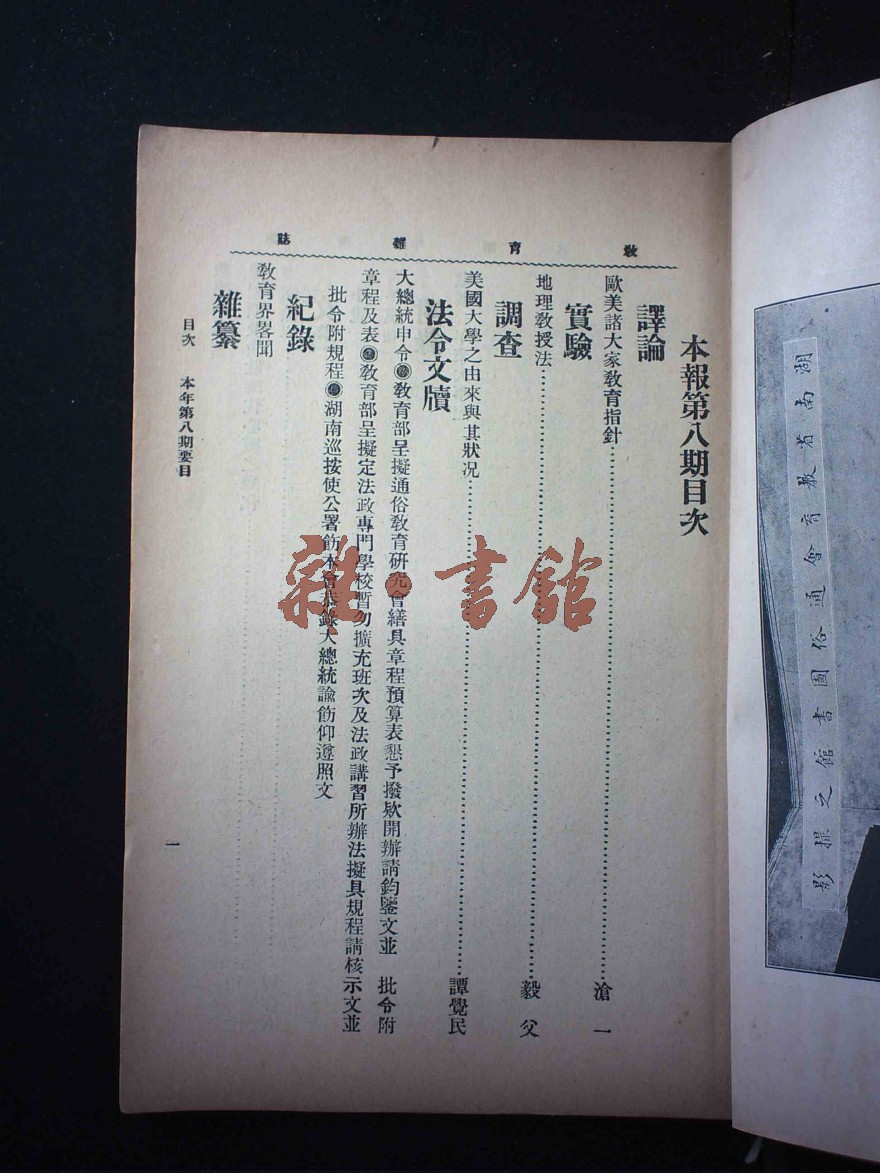 教育雜誌
本報第八期目次
譯論
歐美諸大家教育指針……滄一
實驗
地理教授法……毅父
調查
美國大學之由來與其狀况……譚覺民
法令文牘
大總統申令●教育部呈擬通俗教育研究會繕具章程預算表懇予撥欵開辦請鈞鑒文並 批令附
章程及表●教育部呈擬定法政專門學校暫勿擴充班次及法政講習所辦法擬具規程請核示文並
批令附規程●湖南巡按使公署飭本會恭錄大總統諭飭仰遵照文
紀錄
教育界畧聞
雜纂
目次 本年第八期要目
一
湖南省教育會通俗圖書館之攝影
雜·書館